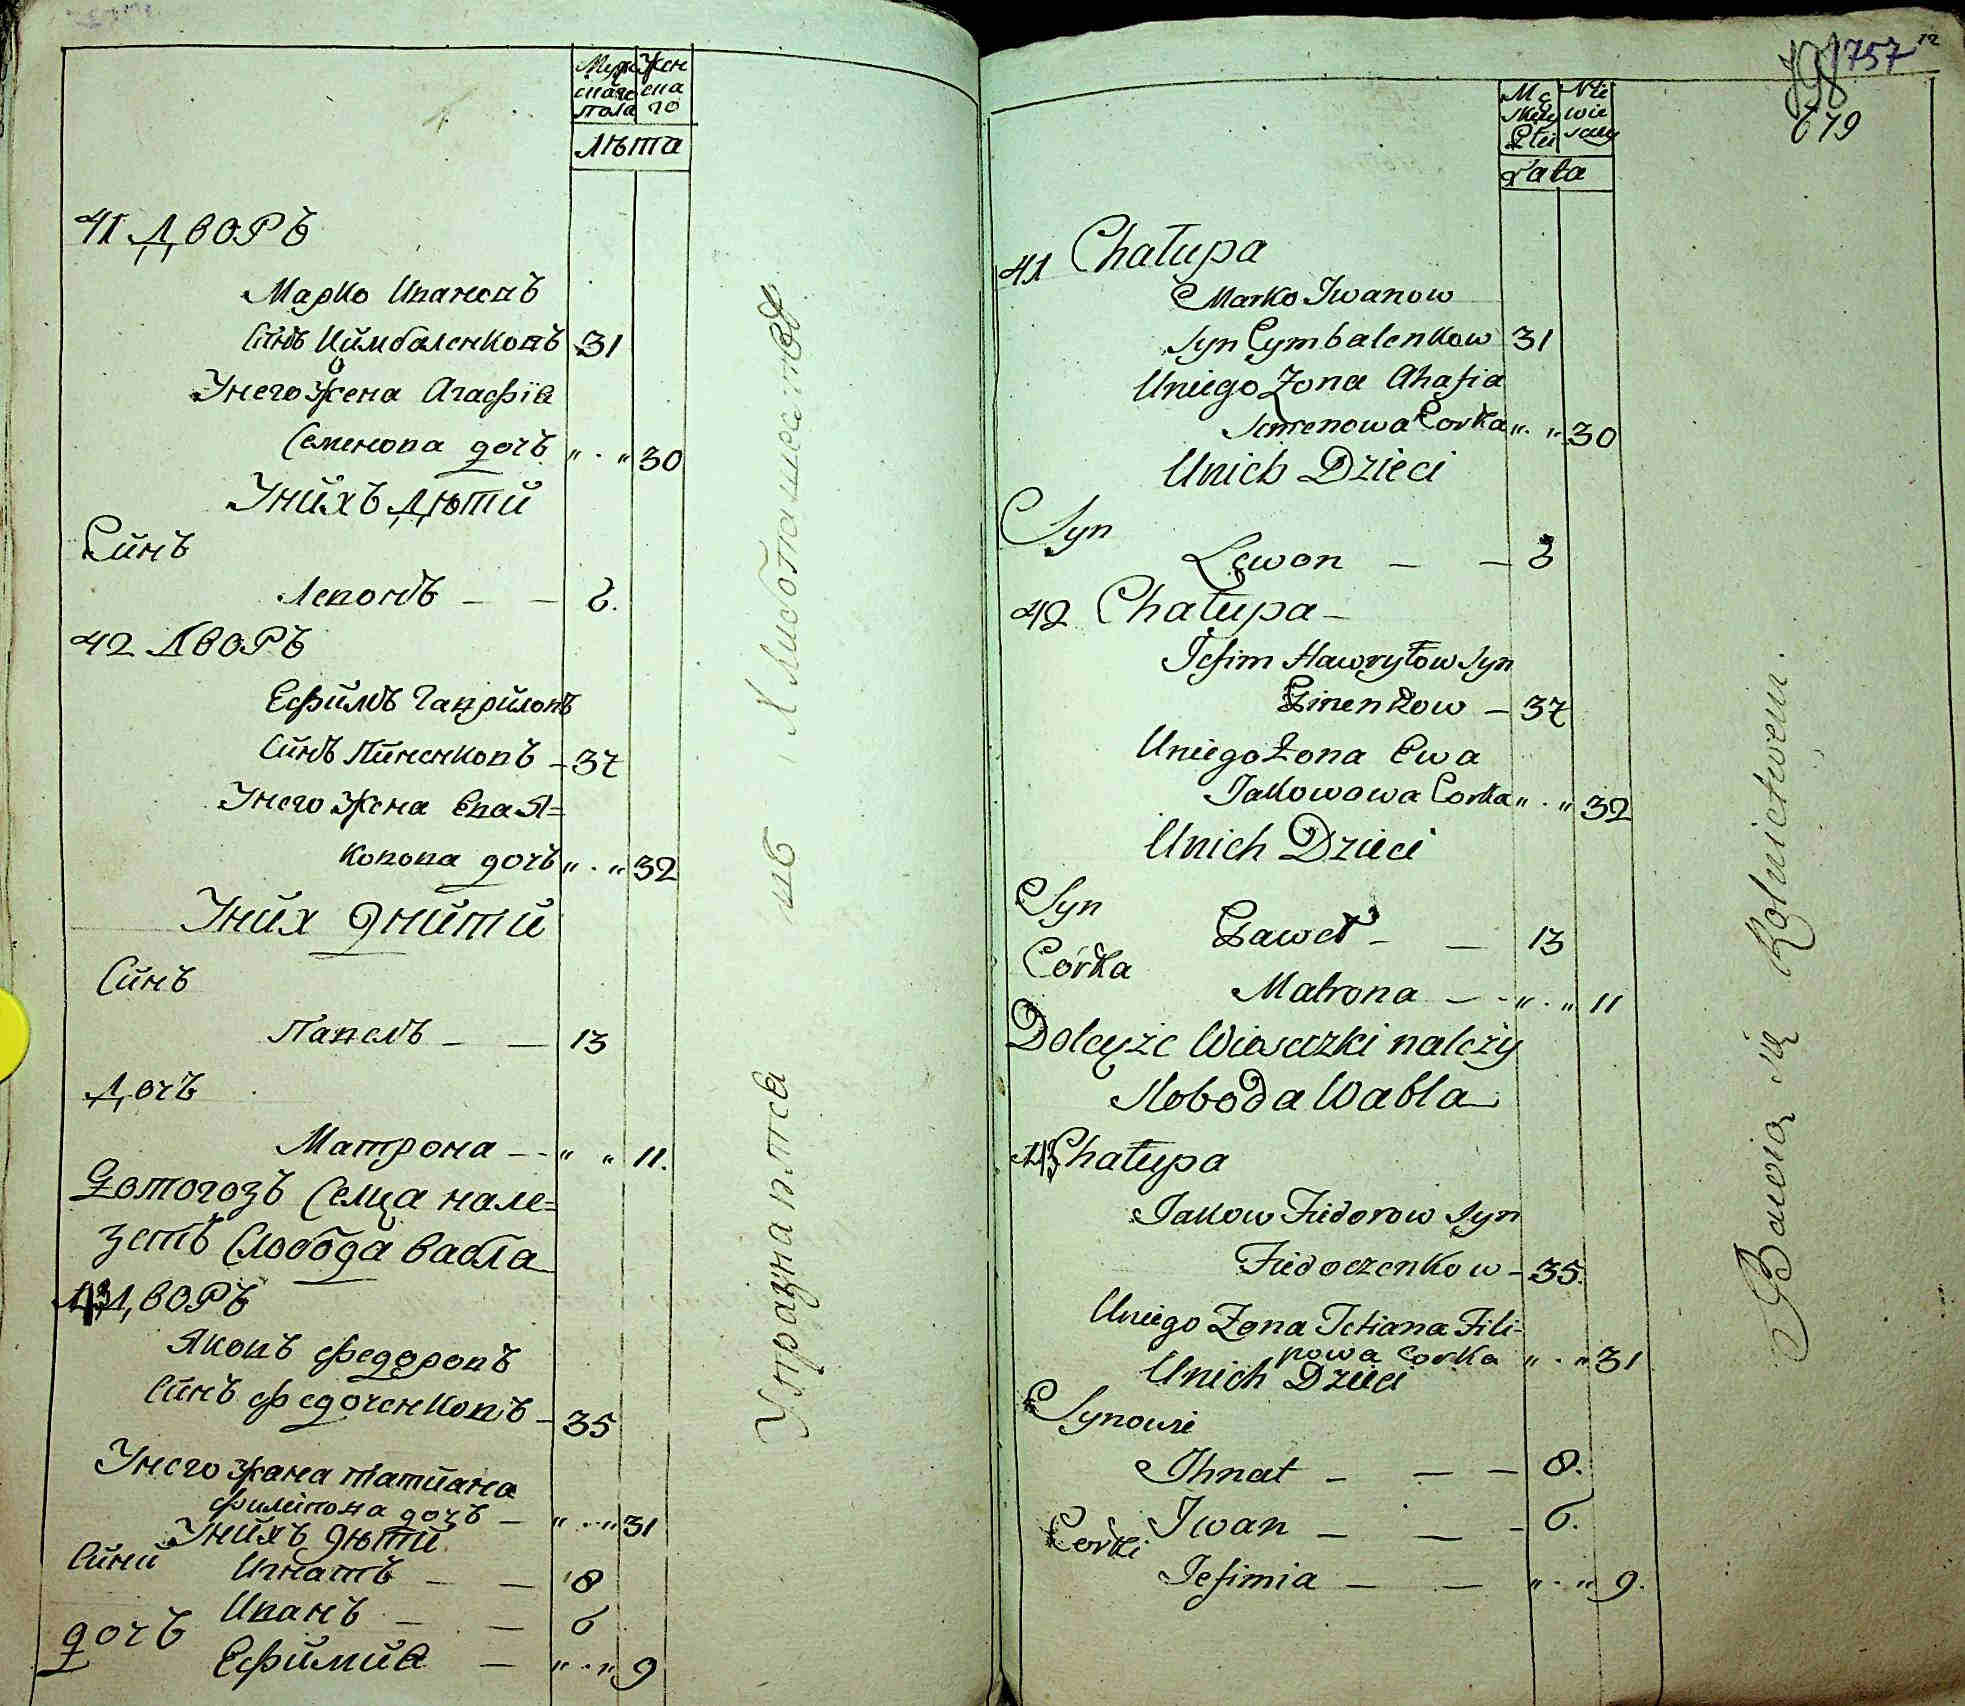 Муже Жен
скаго ска
пола го
лѣта
41 ДВОРЪ
Марко Ивановъ
Синъ Цимбаленковъ 31
Унего Жена Агафія
Семенова дочъ " . " 30
Унихъ Дѣти
Синъ
Левонъ — — 6.
42 ДВОРЪ
Ефимъ Гавриловъ
Синъ Пиненковъ — 37
Унего Жена Ева Я=
ковова дочъ " . " 32
Уних дѣити
Синъ
Павелъ — — 13
Дочъ
Матрона — - " " 11.
Дотогозъ Селца нале=
зетъ Слобода Вабла
43 ДВОРЪ
Яковъ Федоровъ
Синъ Федоченковъ — 35
Унего жана Татиана
Филипова дочъ — " . " 31
Унихъ Дѣти
Сини Игнатъ — — 8
Иванъ — — 6
дочъ
Ефимиа — " . " 9
Упражнаптса
Хлиборашеством
757 12
679
Mę Nie
skiey wie
Płei sciey
Lata
41 Chałupa
Marko Iwanow
Syn Cymbalenkow 31
Uniego Żona Ahafia
Semenowa Corka " . " 30
Unich Dzieci
Syn
Lewon — — 6
42 Chałupa —
Jefim Hawryłow Syn
Pinenkow — 37
Uniego Żona Ewa
Jakowowa Corka " . " 32
Unich Dzieci
Syn
Paweł — — 13
Córka
Matrona — - " . " 11
Doteyże Wioseczki należy
Słoboda Wabla
43 Chałupa
Jakow Fiedorow Syn
Fiedoczenkow — 35.
Uniego Żona Tetiana Fili-
powa Corka " . " 31
Unich Dzieci
Synowie
Ihnat — — — 8.
Iwan — — - 6.
Corki
Jefimia — — " . " 9.
Bawią się Rolnictwem.